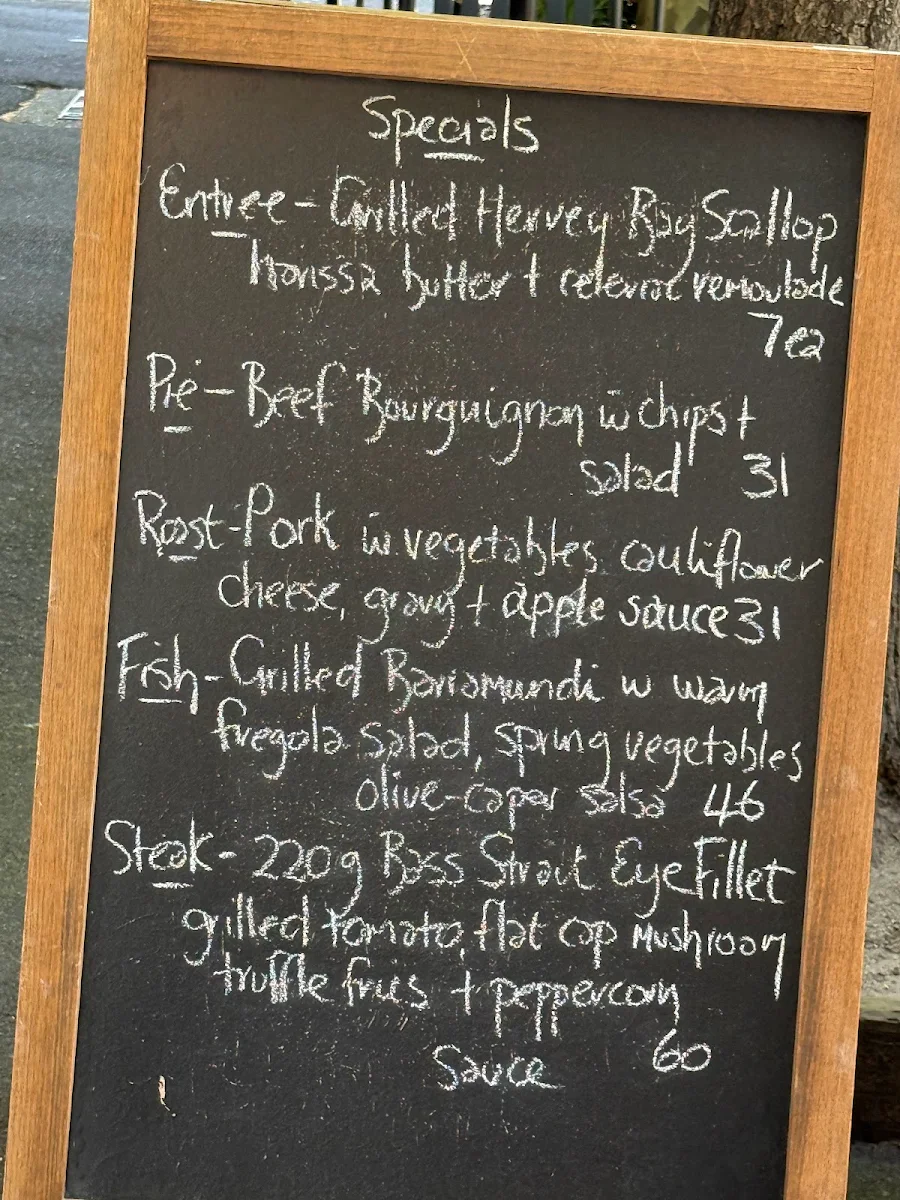 Specials
Entree - Grilled Hervey Bay Scallop
harissa butter + celeriac remoulade
7ea
Pie - Beef Bourguignon w chips +
salad 31
Roast - Pork w vegetables, cauliflower
cheese, gravy + apple sauce 31
Fish - Grilled Barramundi w warm
fregola salad, spring vegetables
olive-caper salsa 46
Steak - 220g Bass Strait Eye Fillet
grilled tomato, flat cap mushroom
truffle fries + peppercorn
sauce 60